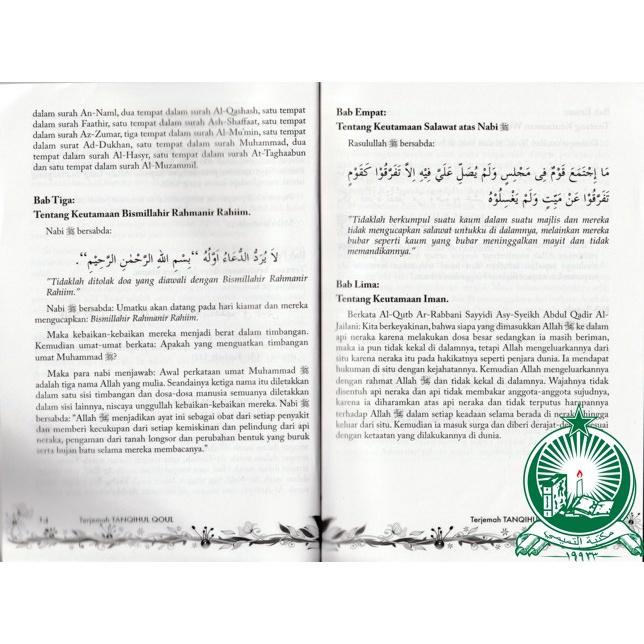 dalam surah An-Naml, dua tempat dalam surah Al-Qashash, satu tempat
dalam surah Faathir, satu tempat dalam surah Ash-Shaffaat, satu tempat
dalam surah Az-Zumar, tiga tempat dalam surah Al-Mu'min, satu tempat
dalam surat Ad-Dukhan, satu tempat dalam surah Muhammad, dua
tempat dalam surah Al-Hasyr, satu tempat dalam surah At-Taghaabun
dan satu tempat dalam surah Al-Muzammil.
Bab Tiga:
Tentang Keutamaan Bismillahir Rahmanir Rahiim.
Nabi ﷺ bersabda:
لاَ يُرَدُّ الدُّعَاءُ أَوَّلُهُ "بِسْمِ اللهِ الرَّحْمٰنِ الرَّحِيْمِ".
"Tidaklah ditolak doa yang diawali dengan Bismillahir Rahmanir
Rahiim."
Nabi ﷺ bersabda: Umatku akan datang pada hari kiamat dan mereka
mengucapkan: Bismillahir Rahmanir Rahiim.
Maka kebaikan-kebaikan mereka menjadi berat dalam timbangan.
Kemudian umat-umat berkata: Apakah yang menguatkan timbangan
umat Muhammad ﷺ?
Maka para nabi menjawab: Awal perkataan umat Muhammad ﷺ
adalah tiga nama Allah yang mulia. Seandainya ketiga nama itu diletakkan
dalam satu sisi timbangan dan dosa-dosa manusia semuanya diletakkan
dalam sisi lainnya, niscaya unggullah kebaikan-kebaikan mereka. Nabi ﷺ
bersabda: "Allah ﷻ menjadikan ayat ini sebagai obat dari setiap penyakit
dan memberi kecukupan dari setiap kemiskinan dan pelindung dari api
neraka, pengaman dari tanah longsor dan perubahan bentuk yang buruk
serta hujan batu selama mereka membacanya."
Terjemah TANQIHUL QOUL
Bab Empat:
Tentang Keutamaan Salawat atas Nabi ﷺ
Rasulullah ﷺ bersabda:
مَا إِجْتَمَعَ قَوْمٌ فِى مَجْلِسٍ وَلَمْ يُصَلِّ عَلَيَّ فِيْهِ إِلاَّ تَفَرَّقُوْا كَقَوْمٍ
تَفَرَّقُوْا عَنْ مَيِّتٍ وَلَمْ يَغْسِلُوْهُ
"Tidaklah berkumpul suatu kaum dalam suatu majlis dan mereka
tidak mengucapkan salawat untukku di dalamnya, melainkan mereka
bubar seperti kaum yang bubar meninggalkan mayit dan tidak
memandikannya."
Bab Lima:
Tentang Keutamaan Iman.
Berkata Al-Qutb Ar-Rabbani Sayyidi Asy-Syeikh Abdul Qadir Al-
Jailani: Kita berkeyakinan, bahwa siapa yang dimasukkan Allah ﷻ ke dalam
api neraka karena melakukan dosa besar sedangkan ia masih beriman,
maka ia pun tidak kekal di dalamnya, tetapi Allah mengeluarkannya dari
situ karena neraka itu pada hakikatnya seperti penjara dunia. Ia mendapat
hukuman di situ dengan kejahatannya. Kemudian Allah mengeluarkannya
dengan rahmat Allah ﷻ dan tidak kekal di dalamnya. Wajahnya tidak
disentuh api dan neraka tidak membakar anggota-anggota sujudnya,
karena ia diharamkan atas api neraka dan tidak terputus harapannya
terhadap Allah ﷻ dalam setiap keadaan selama berada di neraka hingga
keluar dari situ. Kemudian ia masuk surga dan diberi derajat-derajat sesuai
dengan ketaatan yang dilakukannya di dunia.
Terjemah TANQIHUL
مكتبة التميمي
١٩٩٣